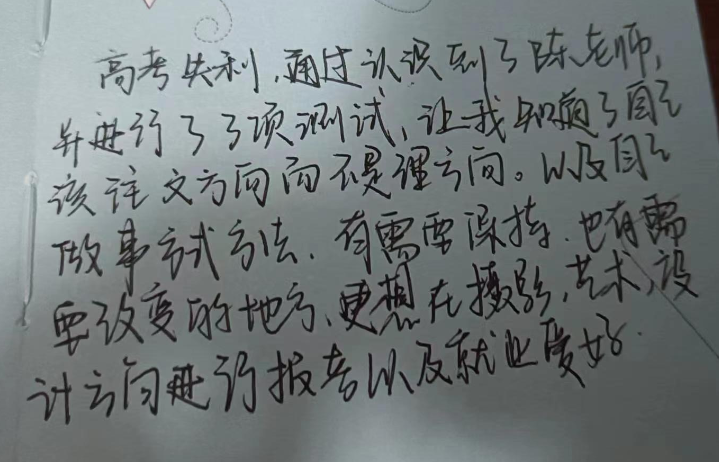 高考失利,通过认识到了陈老师,
并进行了3项测试,让我知道了自己
该往文方向而不是理方向。以及自己
做事方式方法,有需要保持,也有需
要改变的地方,更想在摄影,艺术,设
计方向进行报考以及就业爱好.